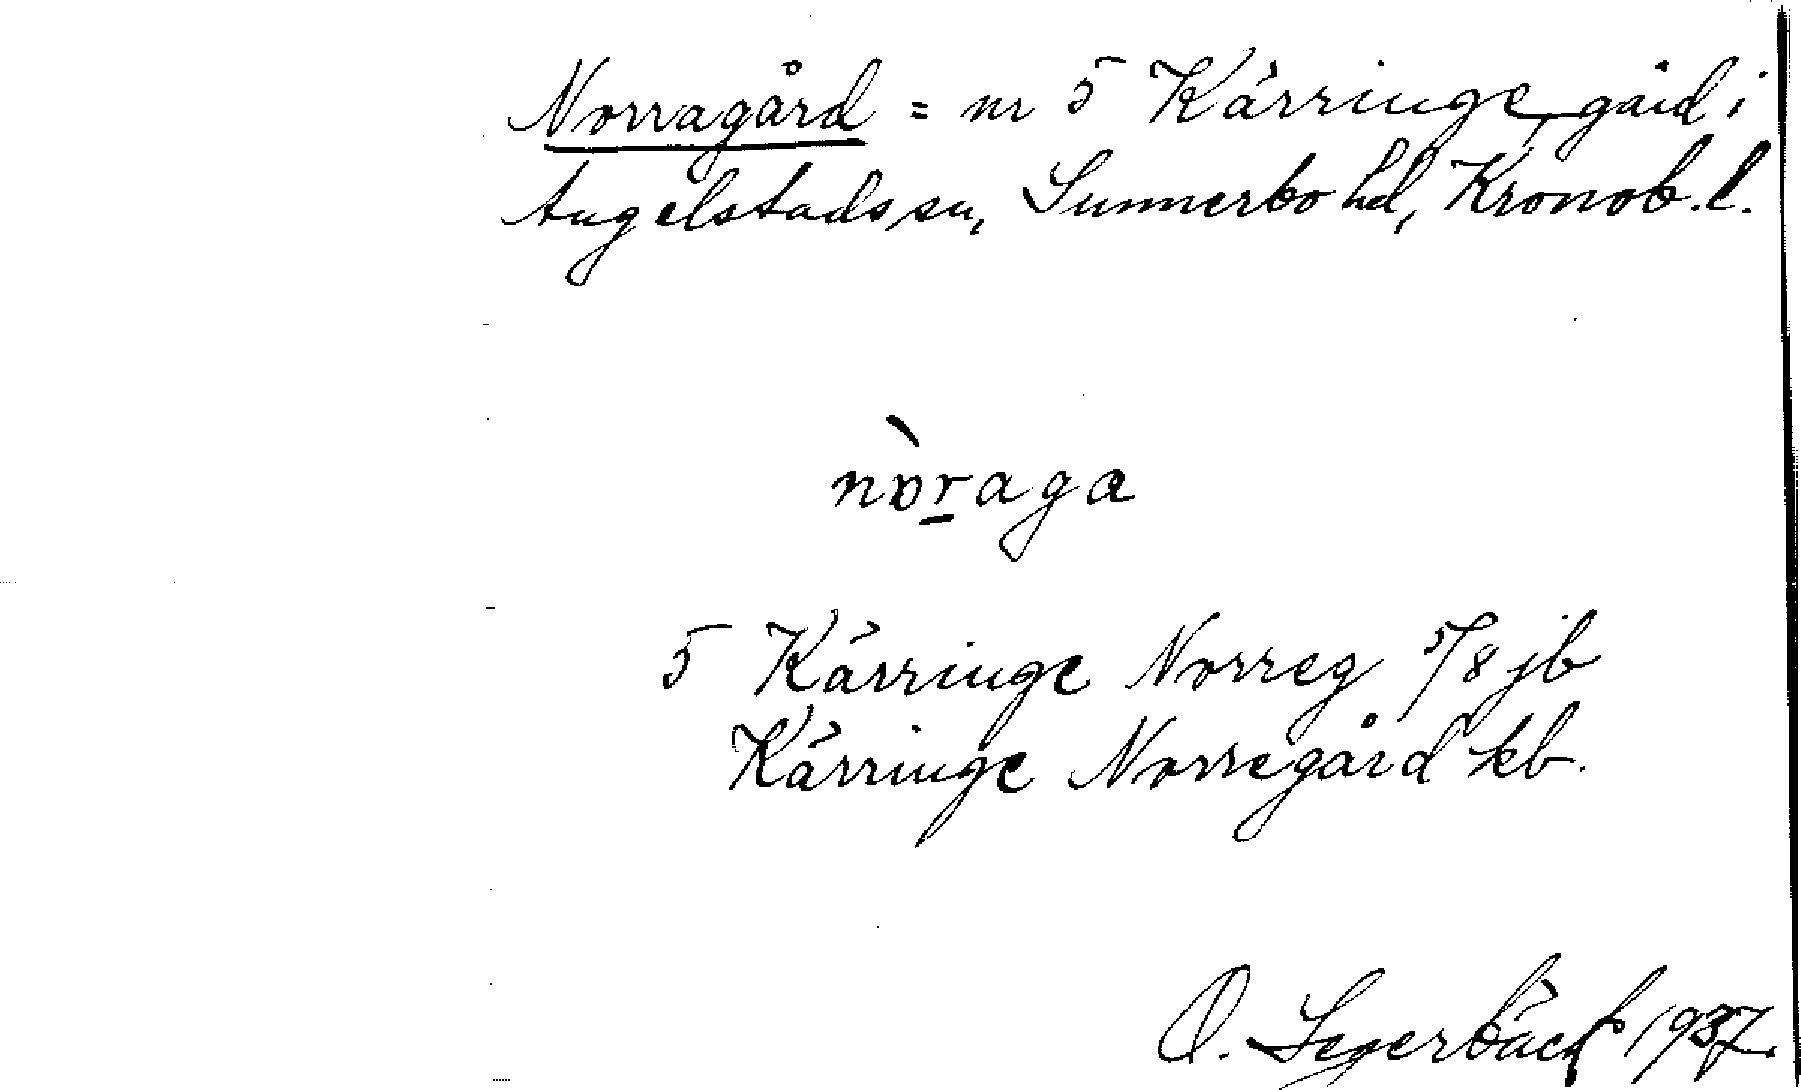 Norragård = nr 5 Kärringe, gård i
Angelstads sn, Sunnerbo hd, Kronob. l.
nòraga
5 Kärringe Norreg 5/8 jb
Kärringe Norregård kb.
O. Segerbäck 1937.